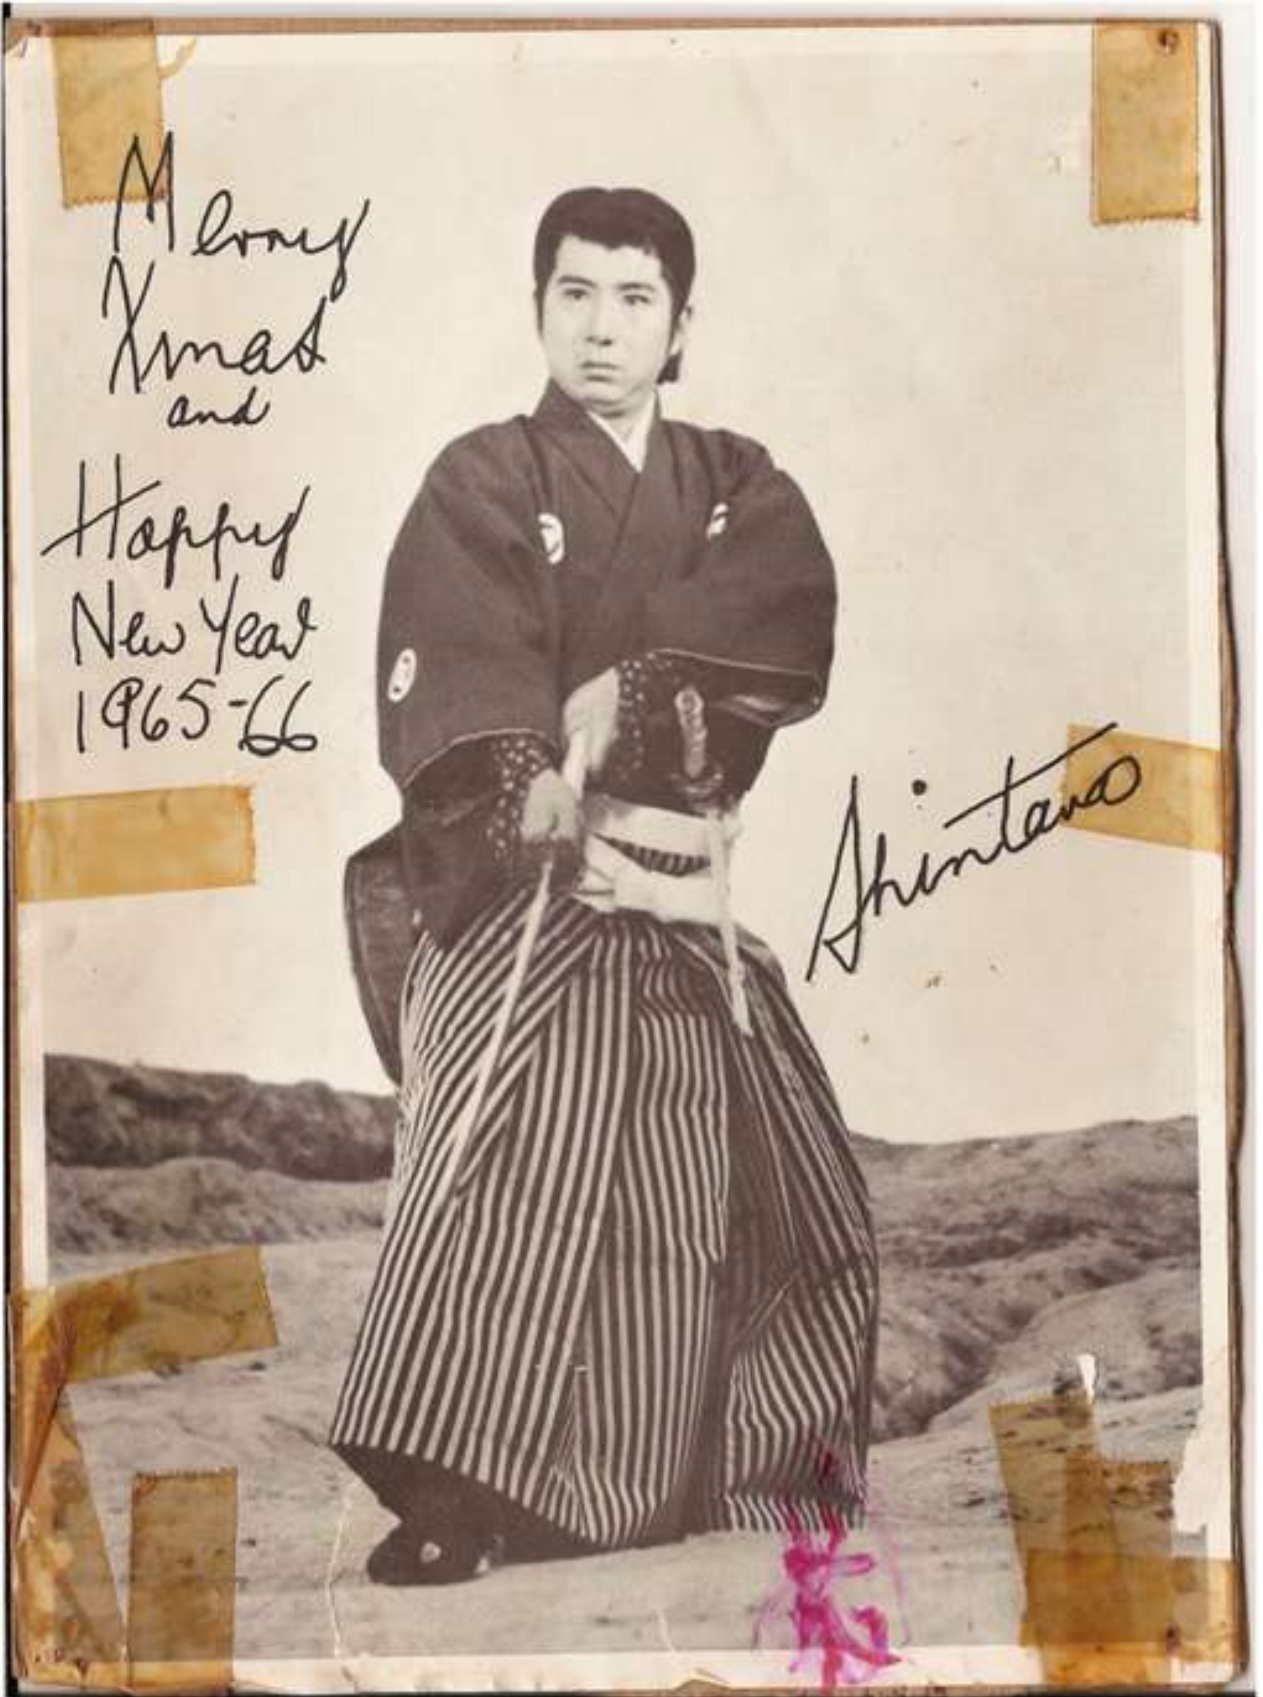 Merry
Xmas
and
Happy
New Year
1965-66
Shintaro